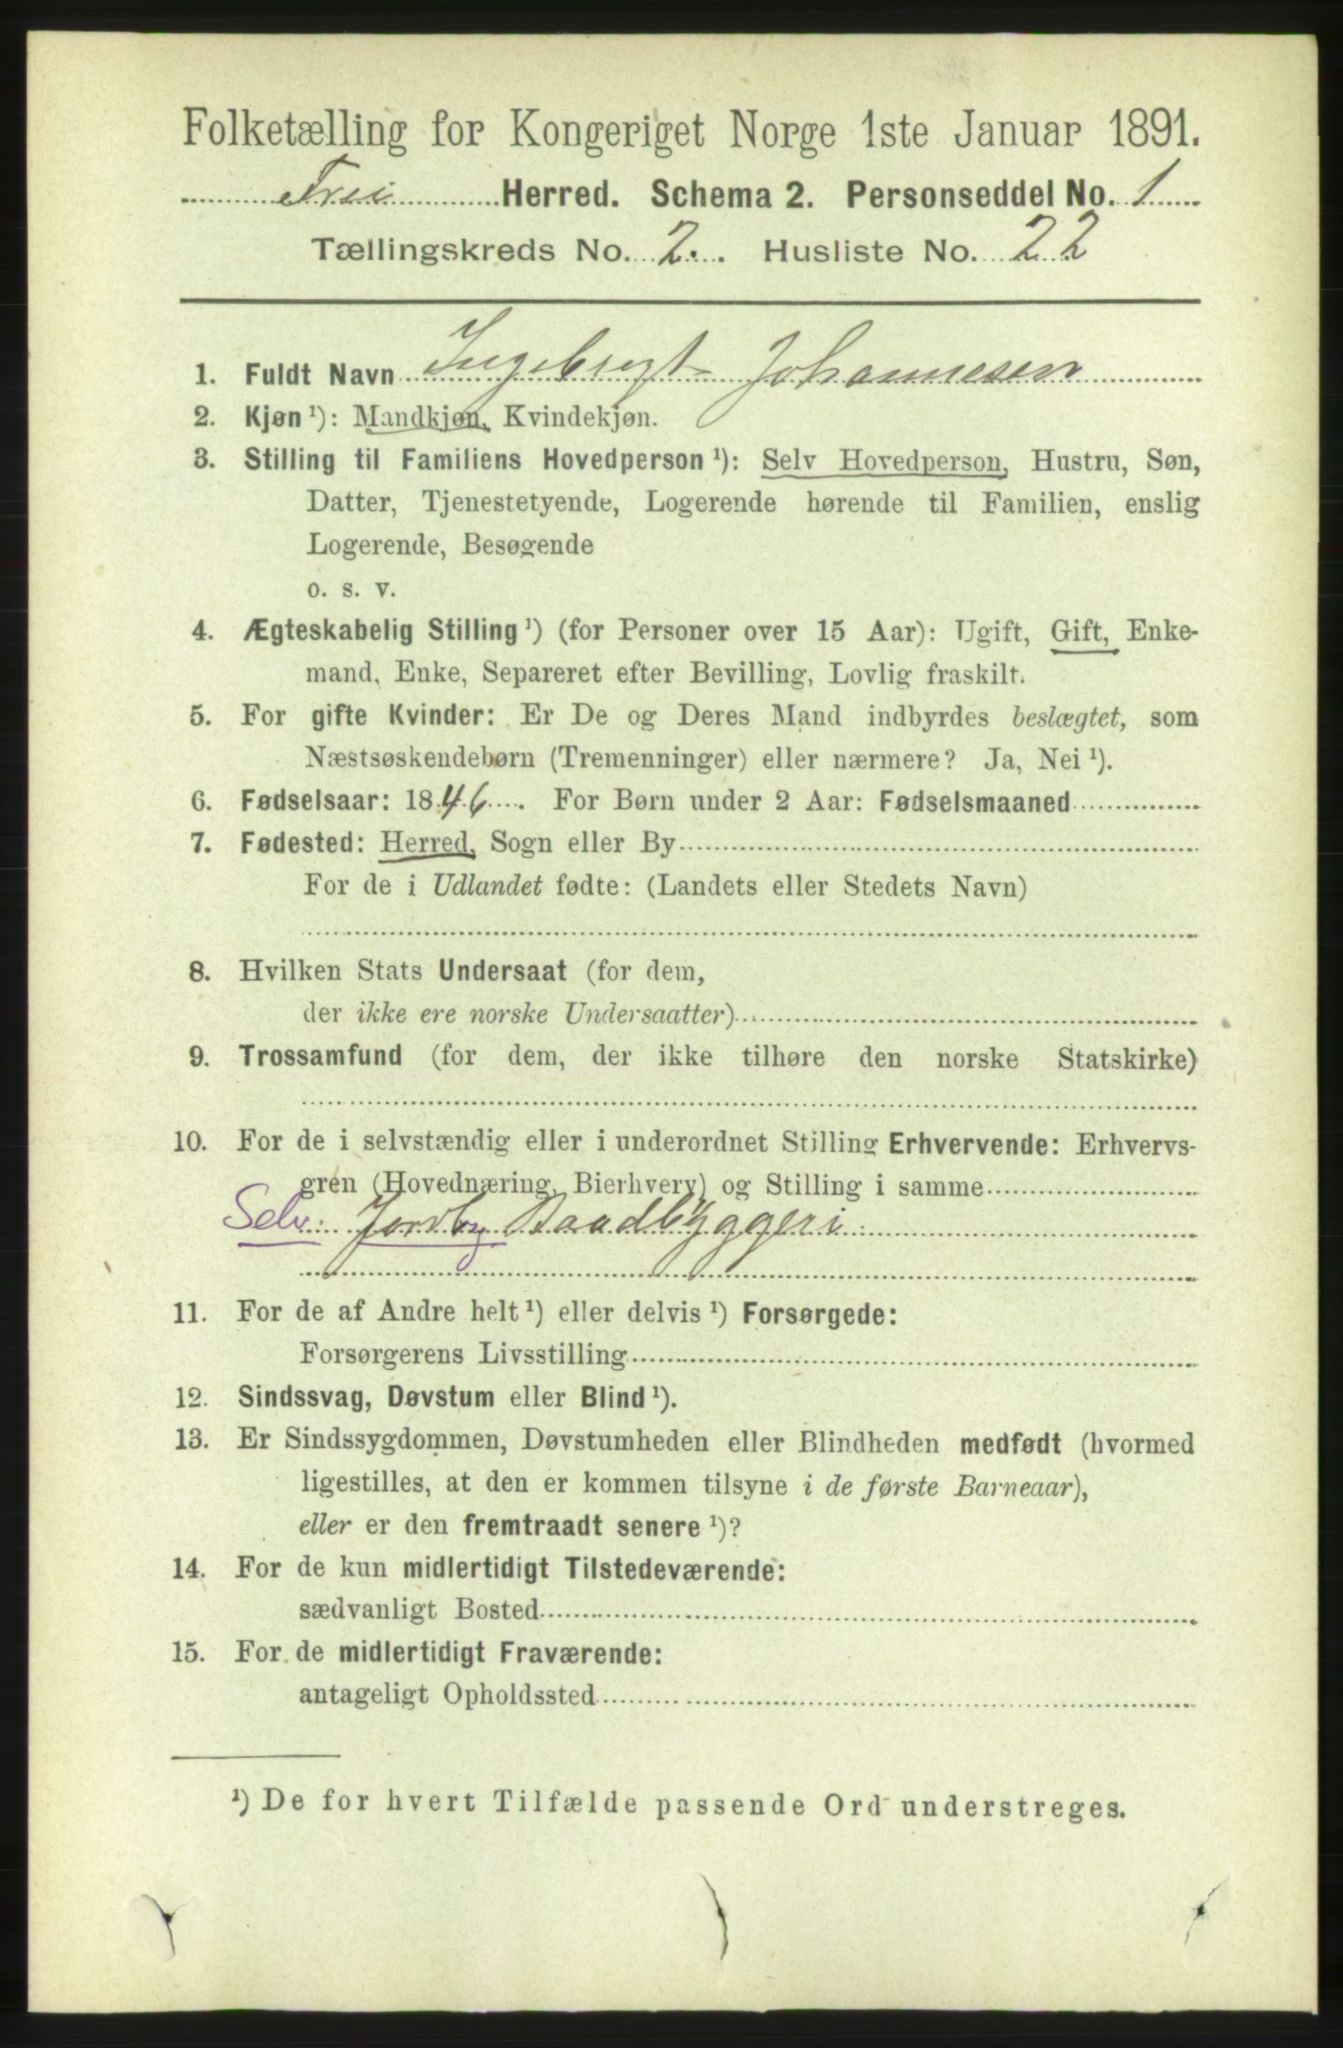 Folketælling for Kongeriget Norge 1ste Januar 1891.
Frei Herred. Schema 2. Personseddel No. 1
Tællingskreds No. 2. Husliste No. 22
1. Fuldt Navn Ingebrigt Johannesen
2. Kjøn ¹): Mandkjøn, Kvindekjøn.
3. Stilling til Familiens Hovedperson ¹): Selv Hovedperson, Hustru, Søn,
Datter, Tjenestetyende, Logerende hørende til Familien, enslig
Logerende, Besøgende
o. s. v.
4. Ægteskabelig Stilling ¹) (for Personer over 15 Aar): Ugift, Gift, Enke-
mand, Enke, Separeret efter Bevilling, Lovlig fraskilt.
5. For gifte Kvinder: Er De og Deres Mand indbyrdes beslægtet, som
Næstsøskendebørn (Tremenninger) eller nærmere? Ja, Nei ¹).
6. Fødselsaar: 1846. For Børn under 2 Aar: Fødselsmaaned
7. Fødested: Herred, Sogn eller By
For de i Udlandet fødte: (Landets eller Stedets Navn)
8. Hvilken Stats Undersaat (for dem,
der ikke ere norske Undersaatter)
9. Trossamfund (for dem, der ikke tilhøre den norske Statskirke)
10. For de i selvstændig eller i underordnet Stilling Erhvervende: Erhvervs-
gren (Hovednæring, Bierhverv) og Stilling i samme
Selv. Jordb Baadbyggeri
11. For de af Andre helt ¹) eller delvis ¹) Forsørgede:
Forsørgerens Livsstilling
12. Sindssvag, Døvstum eller Blind ¹).
13. Er Sindssygdommen, Døvstumheden eller Blindheden medfødt (hvormed
ligestilles, at den er kommen tilsyne i de første Barneaar),
eller er den fremtraadt senere ¹)?
14. For de kun midlertidigt Tilstedeværende:
sædvanligt Bosted
15. For de midlertidigt Fraværende:
antageligt Opholdssted
¹) De for hvert Tilfælde passende Ord understreges.